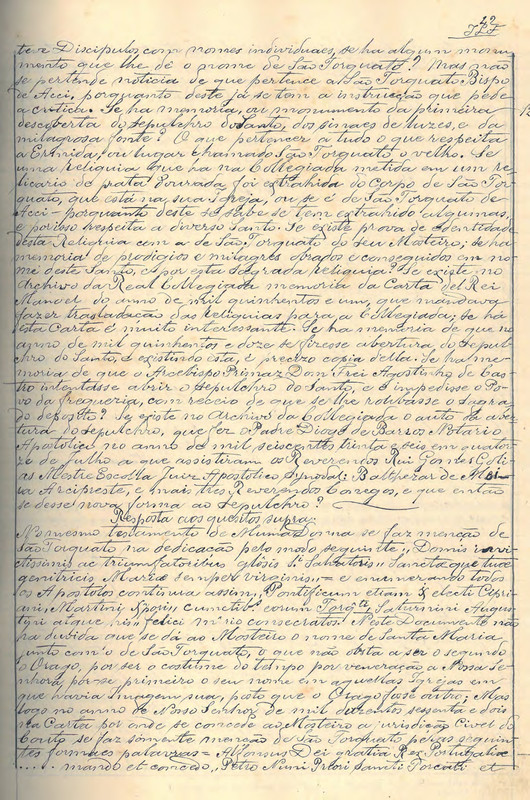 42
teve Discipulos, com nomes individuaes, se ha algum monu
mento que lhe dê o nome de São Torquato? Mas não
se pertende noticia de que pertence a São Torquato Bispo
de Acci, porquanto deste já se tem a instrucção que pede
a critica. Se ha memoria, ou monumento da primeira
descoberta do Sepulchro do Santo, dos sinaes de luzes, e da
milagrosa fonte? O que pertencer a tudo o que respeita
a Ermida, ou lugar chamado São Torquato o velho. Se
uma reliquia que ha na Collegiada metida em um re
licario de prata dourada foi extrahida do Corpo de São Tor
quato, que está na sua Igreja, ou se é de São Torquato de
Acci - porquanto deste se sabe se tem extrahido algumas,
e por isso respeita a diverso Santo. Se existe prova de identidade
desta Reliquia com a de São Torquato do seu Mosteiro; se ha
memoria de prodigios e milagres obrados e conseguidos em no
me deste Santo, e por esta sagrada reliquia? Se existe no
Archivo da Real Collegiada memoria da Carta del Rei
Manoel do anno de mil quinhentos e um, que mandava
fazer trasladação das Reliquias para a Collegiada; se há
esta Carta é muito interessante. Se ha memoria de que no
anno de mil quinhentos e doze se fizesse abertura do Sepul
chro do Santo, e existindo esta, é precizo copia della. Se ha me
moria de que o Arcebispo Primaz Dom Frei Agostinho de Cas
tro intentasse abrir o Sepulchro do Santo, e o impedisse o Po
vo da freguezia, com receio de que se lhe roubasse o sagra
do deposito? Se existe no Archivo da Collegiada o auto da aber
tura do sepulchro, que fez o Padre Diogo de Barros Notario
Apostolico no anno de mil seiscentos trinta e seis em quator
ze de Julho a que assistiram os Reverendos Rui Gomes Goli
as Mestre Escolla Juiz Apostolico Synodal; Balthezar de Mei
ra Arcipreste, e mais tres Reverendos Conegos, e que então
se desse nova forma ao Sepulchro?
Resposta aos quesitos supra.
No mesmo testamento de Muma Donna se faz menção de
São Torquato na dedicação pelo modo seguinte „ Domnis invi
ctissimis ac triumfatoribus glosis Sti Salvatoris „ Sanctæ que tuæ
genitricis Mariæ semper virginis „ = e enumerando todos
os Apostolos continua assim „ Pontificum etiam & electi Cipri
ani, Martini eorum Torqti Saturnini Augus
tini atque felici consecratos. Neste Documento não
ha duvida que se dá ao Mosteiro o nome de Santa Maria
junto com o de São Torquato, o que não obsta a ser o segundo
o Orago, por ser o costume do tempo por veneração a Nossa Se
nhora, pôr-se primeiro o seu nome em aquellas Igrejas em
que havia Imagem sua, posto que o Orago fosse outro; Mas
logo no anno de Nosso Senhor de mil duzentos sessenta e dois
na Carta por onde se concede ao Mosteiro a jurisdição Civel do
Couto se faz sómente menção de São Torquato pelas seguin
tes formaes palavras = Alfonsus Dei gratia Rex Portugaliæ
..... mando et concedo „ Petro Nuni Priori Sancti Torcati et